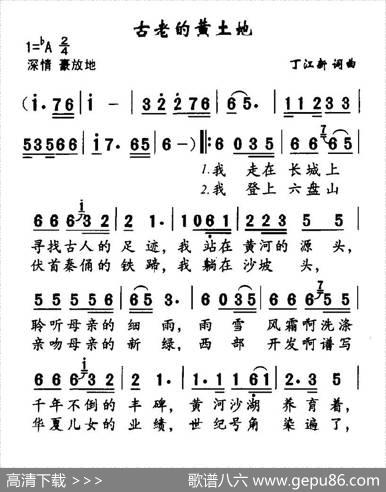 古老的黄土地
1=♭A 2/4
深情 豪放地
丁江新 词曲
(i·76 | i - | 32276 | 65· | 11233 |
53566 | i7·65 | 6-) ‖: 6035 | 665 |
1.我 走在 长城上
2.我 登上 六盘山
666632 | 21· | 1061 | 23212 | 33· |
寻找古人的 足迹,我 站在 黄河的 源 头,
伏首秦俑的 铁蹄,我 躺在 沙坡 头,
555556 | 653· | 206 | 66656 | 55 |
聆听母亲的 细 雨,雨 雪 风霜啊洗涤
亲吻母亲的 新 绿,西 部 开发啊谱写
666632 | 21· | 1·1 | 1161 | 2·35 |
千年不倒的 丰碑,黄河沙湖 养育着,
华夏儿女的 业绩,世纪号角 染遍了,
高清下载 >>>
歌谱八六 www.gepu86.com